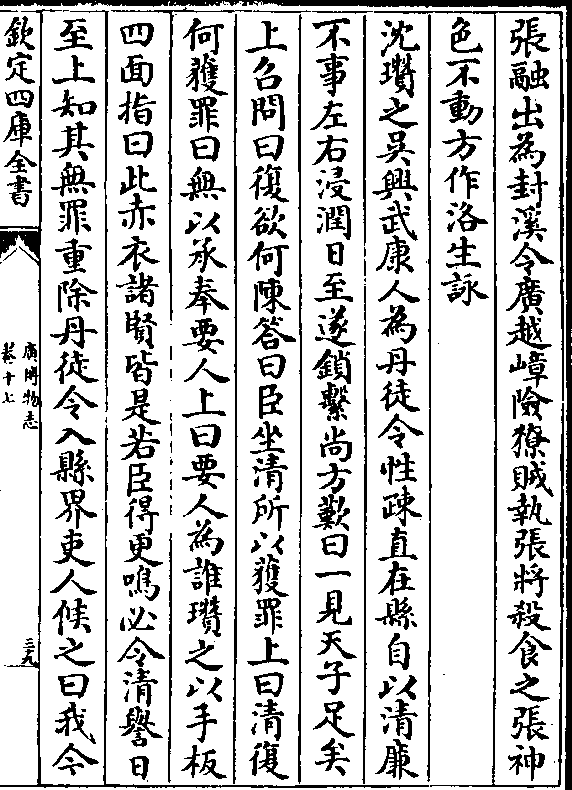 張融出為封溪令廣越嶂險獠賊執張將殺食之張神
色不動方作洛生詠
沈瓚之吳興武康人為丹徒令性疎直在縣自以清廉
不事左右浸潤日至遂鎖繫尚方歎曰一見天子足矣
上召問曰復欲何陳答曰臣坐清所以獲罪上曰清復
何獲罪曰無以承奉要人上曰要人為誰瓚之以手板
四面指曰此赤衣諸賢皆是若臣得更鳴必令清譽日
至上知其無罪重除丹徒令入縣界吏人候之曰我今
欽定四庫全書
廣博物志
卷十七
三九